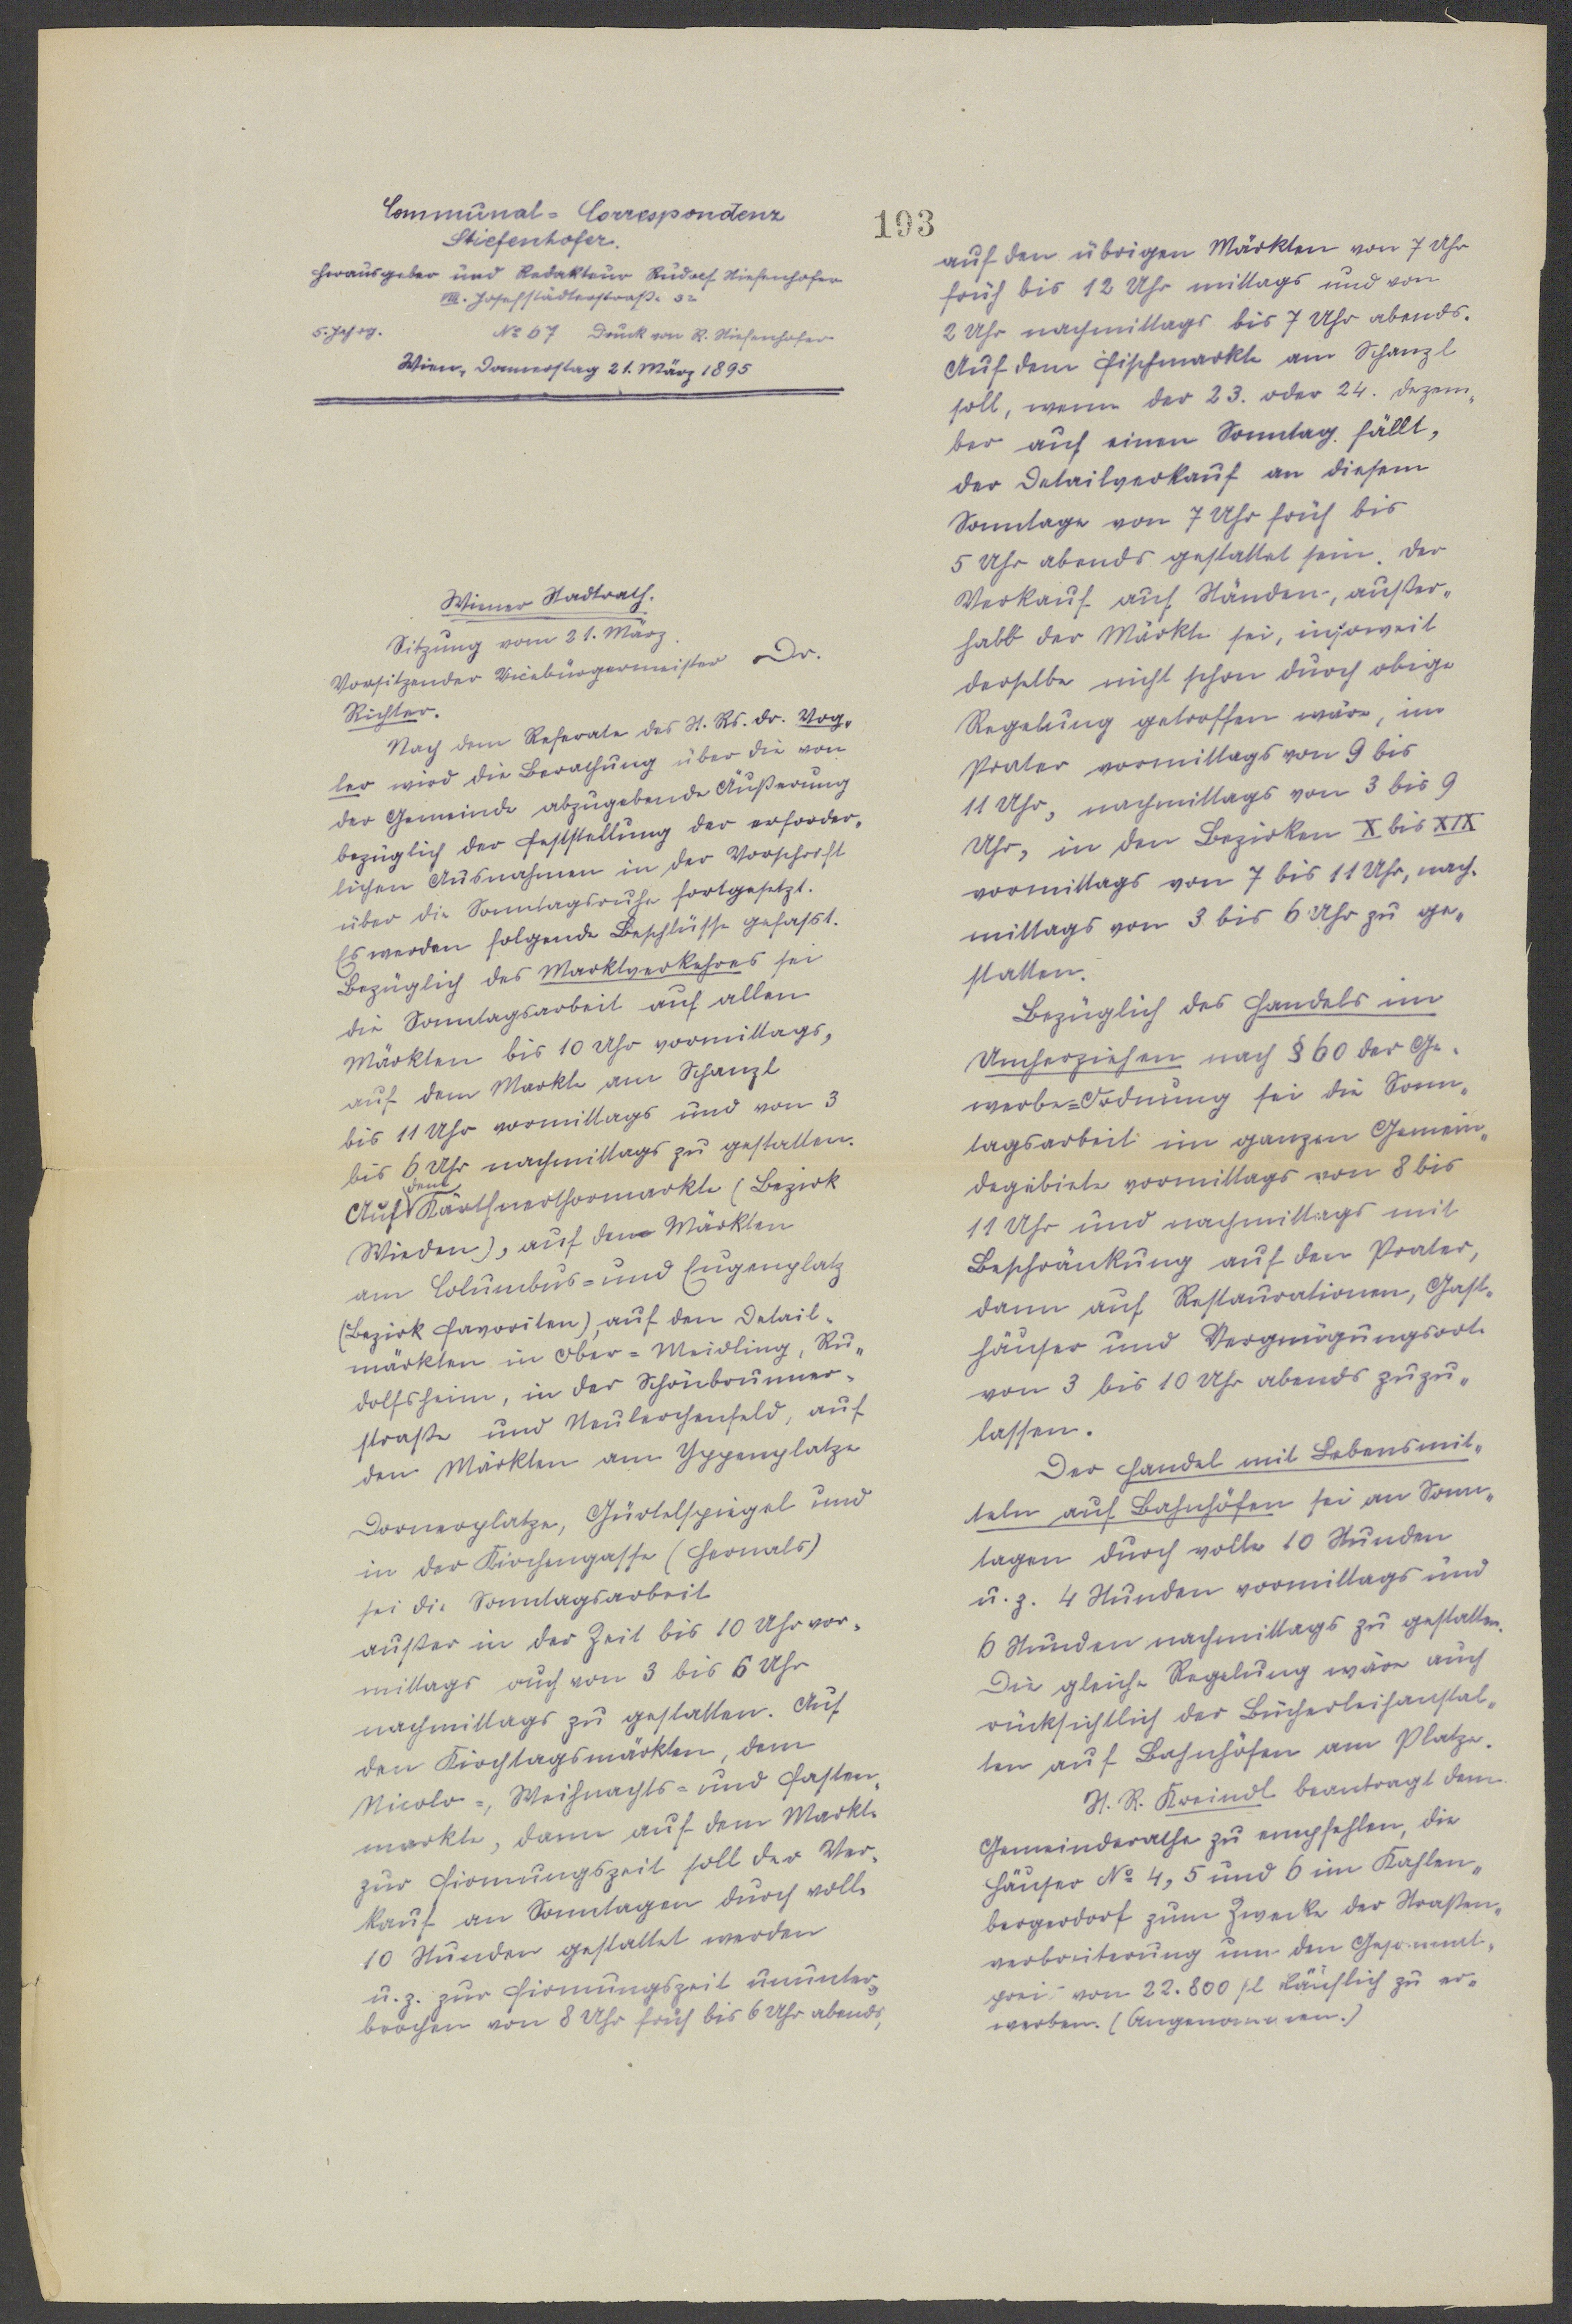 Communal=Correspondenz
Stiefenhofer.
Herausgeber und Redakteur Rudolf Stiefenhofer
VIII. Josefstädterstraße 32
5. Jahrg. No 67 Druck von R. Stiefenhofer
Wien, Donnerstag 21. März 1895
Wiener Stadtrath.
Sitzung vom 21. März.
Vorsitzender Vicebürgermeister Dr.
Richter.
Nach dem Referate des St. Rs. Dr. Vog-
ler wird die Berathung über die von
der Gemeinde abzugebende Äußerung
bezüglich der Feststellung der erforder-
lichen Ausnahmen in der Vorschrift
über die Sonntagsruhe fortgesetzt.
Es werden folgende Beschlüsse gefasst.
Bezüglich des Marktverkehres sei
die Sonntagsarbeit auf allen
Märkten bis 10 Uhr vormittags,
auf dem Markte am Schanzl
bis 11 Uhr vormittags und von 3
bis 6 Uhr nachmittags zu gestatten.
Auf dem Kärthnerthormarkte (Bezirk
Wieden), auf den Märkten
am Columbus= und Eugenplatz
(Bezirk Favoriten), auf den Detail-
märkten in Ober=Meidling, Ru-
dolfsheim, in der Schönbrunner-
straße und Neulerchenfeld, auf
den Märkten am Yppenplatze
Dornerplatze, Gürtelspiegel und
in der Kirchengasse (Hernals)
sei die Sonntagsarbeit
außer in der Zeit bis 10 Uhr vor-
mittags auch von 3 bis 6 Uhr
nachmittags zu gestatten. Auf
den Kirchtagsmärkten, dem
Nicolo=, Weihnachts= und Fasten-
markte, dann auf dem Markte
zur Firmungszeit soll der Ver-
kauf an Sonntagen durch volle
10 Stunden gestattet werden
u. z. zur Firmungszeit ununter-
brochen von 8 Uhr früh bis 6 Uhr abends,
193
auf den übrigen Märkten von 7 Uhr
früh bis 12 Uhr mittags und von
2 Uhr nachmittags bis 7 Uhr abends.
Auf dem Fischmarkte am Schanzl
soll, wenn der 23. oder 24. Dezem-
ber auf einen Sonntag fällt,
der Detailverkauf an diesem
Sonntage von 7 Uhr früh bis
5 Uhr abends gestattet sein. Der
Verkauf auf Ständen, außer-
halb der Märkte sei, insoweit
derselbe nicht schon durch obige
Regelung getroffen wäre, im
Prater vormittags von 9 bis
11 Uhr, nachmittags von 3 bis 9
Uhr, in den Bezirken X bis XIX
vormittags von 7 bis 11 Uhr, nach-
mittags von 3 bis 6 Uhr zu ge-
statten.
Bezüglich des Handels im
Umherziehen nach § 60 der Ge-
werbe=Ordnung sei die Sonn-
tagsarbeit im ganzen Gemein-
degebiete vormittags von 8 bis
11 Uhr und nachmittags mit
Beschränkung auf den Prater,
dann auf Restaurationen, Gast-
häuser und Vergnügungsorte
von 3 bis 10 Uhr abends zuzu-
lassen.
Der Handel mit Lebensmit-
teln auf Bahnhöfen sei an Sonn-
tagen durch volle 10 Stunden
u. z. 4 Stunden vormittags und
6 Stunden nachmittags zu gestatten.
Die gleiche Regelung wäre auch
rücksichtlich der Bücherleihanstal-
ten auf Bahnhöfen am Platze.
St. R. Kreindl beantragt dem
Gemeinderathe zu empfehlen, die
Häuser No 4, 5 und 6 im Kahlen-
bergerdorf zum Zwecke der Straßen-
verbreiterung um den Gesammt-
preis von 22.800 fl käuflich zu er-
werben. (Angenommen.)